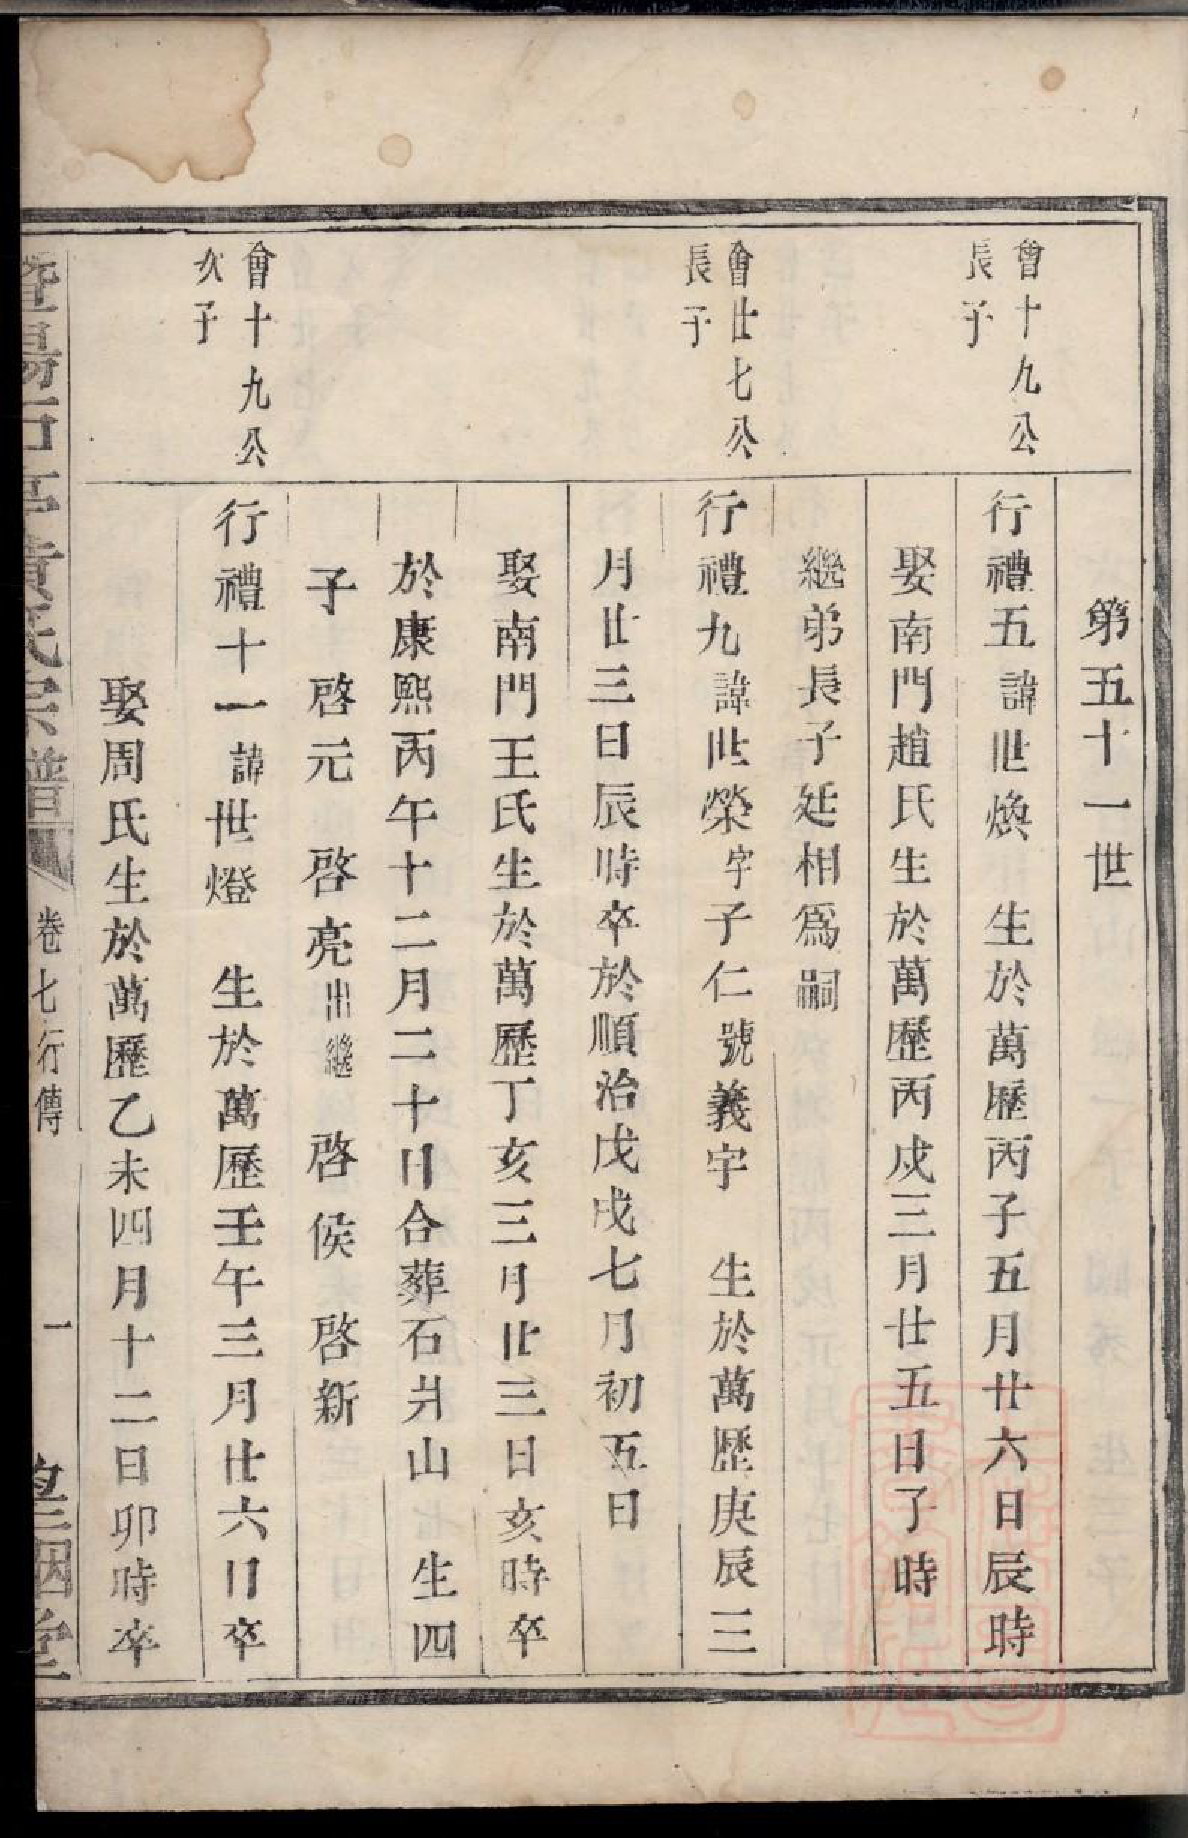 第五十一世
會十九公
長子
行禮五諱世煥　生於萬歷丙子五月廿六日辰時
娶南門趙氏生於萬歷丙戍三月廿五日子時
繼弟長子廷相爲嗣
會廿七公
長子
行禮九諱世榮字子仁號義宇　生於萬歷庚辰三
月廿三日辰時卒於順治戊戌七月初五日
娶南門王氏生於萬歷丁亥三月廿三日亥時卒
於康熙丙午十二月二十日合葬石井山　生四
子　啓元　啓亮出繼　啓侯　啓新
會十九公
次子
行禮十一諱世燈　生於萬歷壬午三月廿六日卒
娶周氏生於萬歷乙未四月十二日卯時卒
暨陽石亭黄氏宗譜　卷七行傳　一　堂